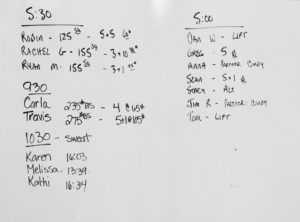 5:30
ROBIN - 125 - 5+5
RACHEL G - 155 - 3+10
RYAN M - 155 - 3+1
930
Carla 235#BS - 4 @ 65#
Travis 275#BS - 5+1@105#
1030 - sweat
Karen 16:03
Melissa 13:39
Kathi 16:34
5:00
DAN W - LIFT
GREG - 5 R
ANNA - PARTNER CINDY
SEAN - 5+1 R
STACY - ALT
JIM R - PARTNER CINDY
TOM - LIFT